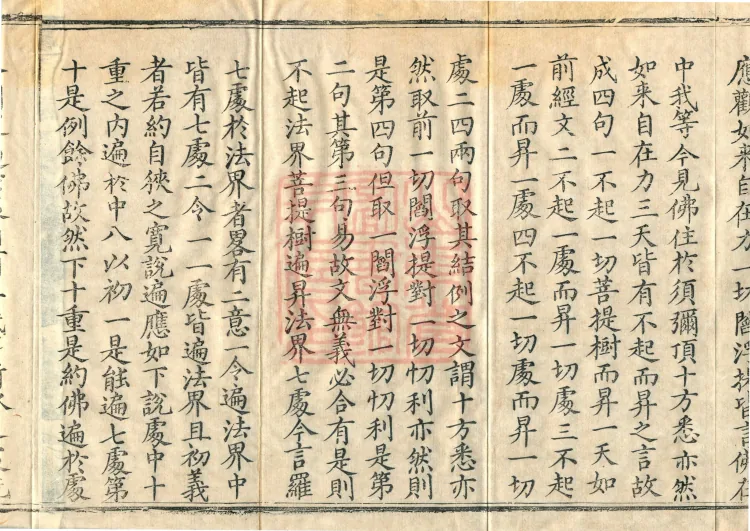 應觀如来自在力一切閻浮提皆言佛在
中我等今見佛住於須彌頂十方悉亦然
如来自在力三天皆有不起而昇之言故
成四句一不起一切菩提樹而昇一天如
前經文二不起一處而昇一切處三不起
一處而昇一處四不起一切處而昇一切
處二四兩句取其結例之文謂十方悉亦
然取前一切閻浮提對一切忉利亦然則
是第四句但取一閻浮對一切忉利是第
二句其第三句易故文無義必合有是則
不起法界菩提樹遍昇法界七處今言羅
七處於法界者畧有二意一令遍法界中
皆有七處二令一一處皆遍法界且初義
者若約自狹之寬說遍應如下說處中十
重之内遍於中八以初一是能遍七處第
十是例餘佛故然下十重是約佛遍於處